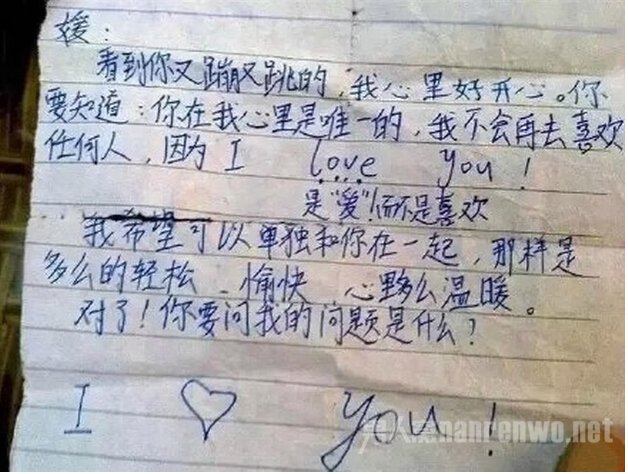 媛：
看到你又蹦又跳的，我心里好开心。你
要知道：你在我心里是唯一的，我不会再去喜欢
任何人，因为 I love you！
是“爱”而不是喜欢
我希望可以单独和你在一起，那样是
多么的轻松、愉快 心里多么温暖。
对了！你要问我的问题是什么？
I ♡ you！
nanrenwo.net